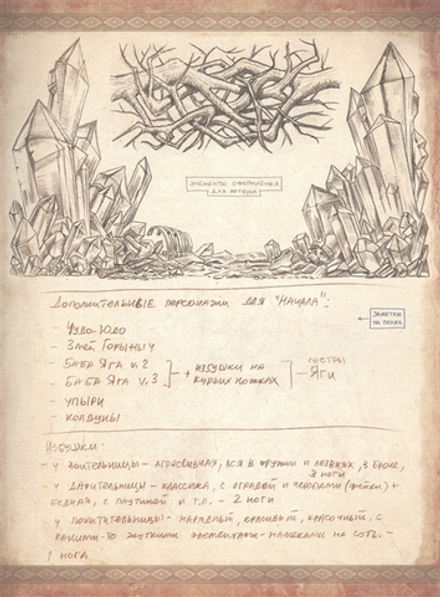 ЭЛЕМЕНТЫ ОФОРМЛЕНИЯ
ДЛЯ АРТБУКА
ДОПОЛНИТЕЛЬНЫЕ ПЕРСОНАЖИ ДЛЯ "НАЧАЛА":
ЗАМЕТКИ
НА ПОЛЯХ
- ЧУДО-ЮДО
- ЗМЕЙ ГОРЫНЫЧ
- БАБА ЯГА v.2
- БАБА ЯГА v.3
+ ИЗБУШКИ НА
КУРЬИХ НОЖКАХ
СЕСТРЫ
ЯГИ
- УПЫРИ
- КОЛДУНЫ
ИЗБУШКИ:
- У ВОИТЕЛЬНИЦЫ - АГРЕССИВНАЯ, ВСЯ В ОРУЖИИ И ЛЕЗВИЯХ, В БРОНЕ,
3 НОГИ
- У ДАРИТЕЛЬНИЦЫ - КЛАССИКА, С ОГРАДОЙ И ЧЕРЕПАМИ +
БЕДНАЯ, С ПАУТИНОЙ И Т.П. - 2 НОГИ
У ПОХИТИТЕЛЬНИЦЫ - НАРЯДНЫЙ, КРАСИВЫЙ, КРАСОЧНЫЙ, С
КАКИМИ-ТО ЖУТКИМИ ЭЛЕМЕНТАМИ-НАМЕКАМИ НА СУТЬ -
1 НОГА